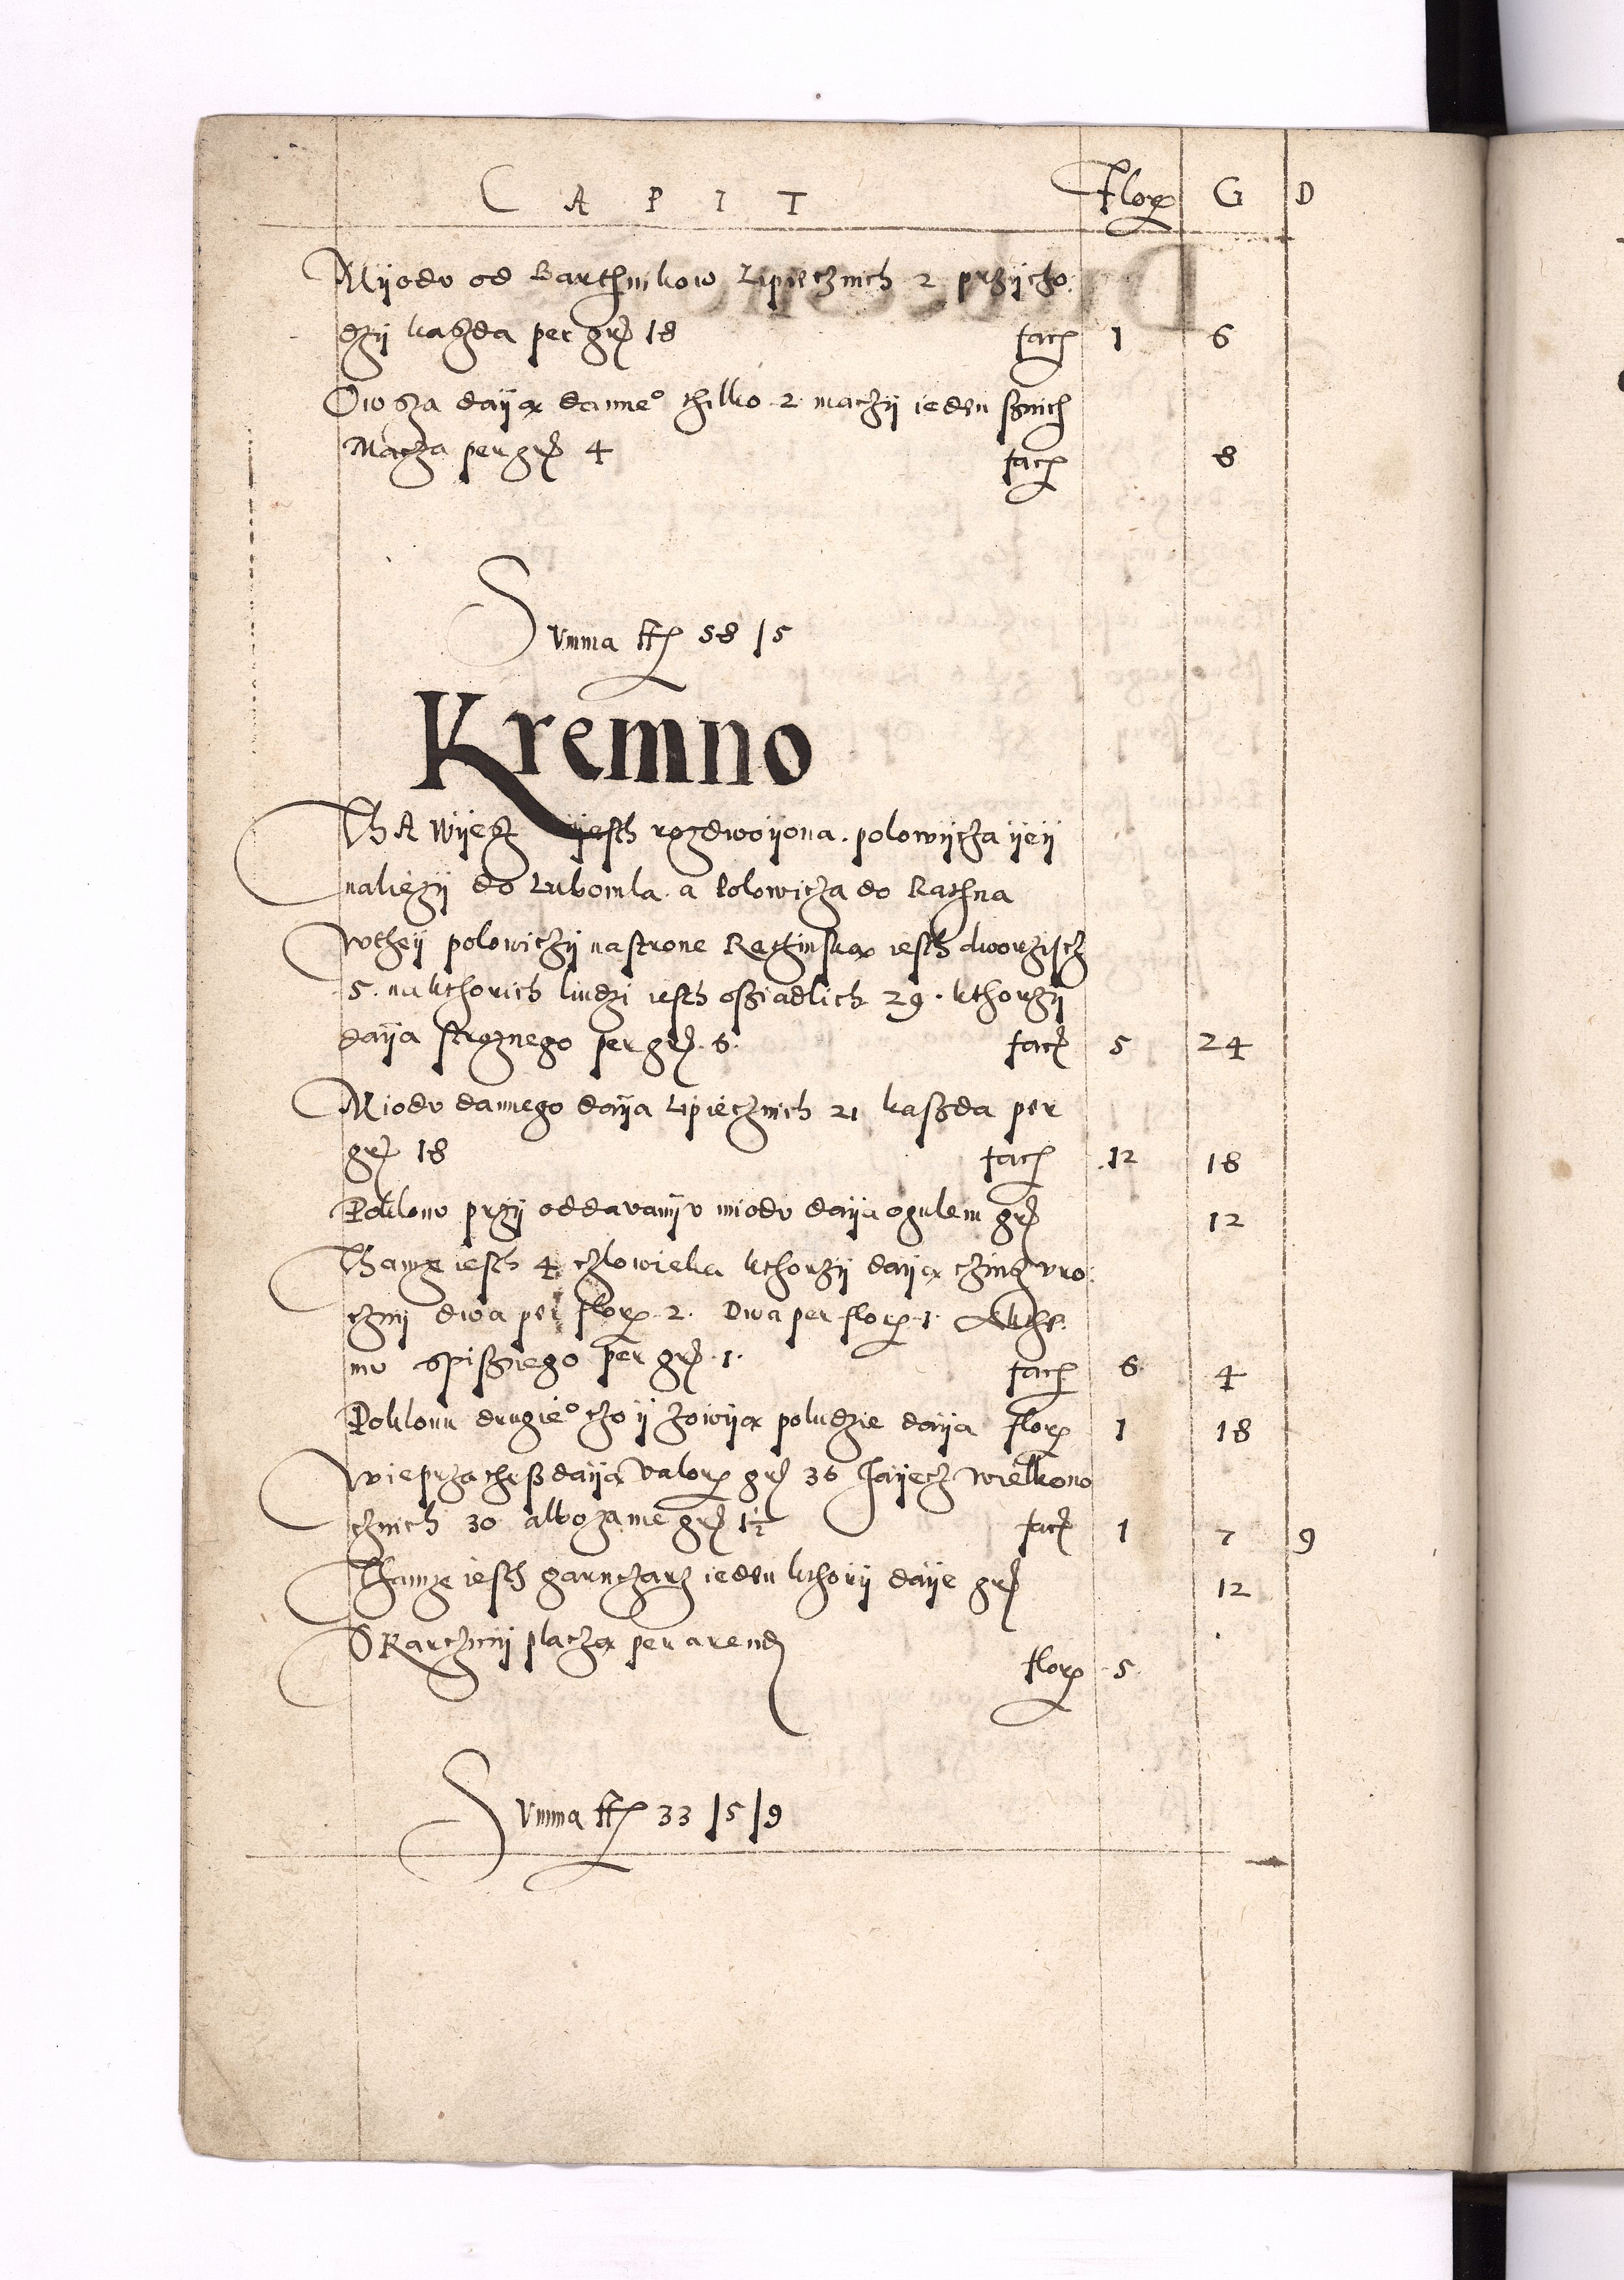 CAPIT Flor G D
Myodv od Barthnikow Lipiecznich 2 przycho
dzy kaszda per gr 18 facit 1 6
Owsza dayą danne° thilko 2 maczy ieden sznich
Macza per gr 4 facit 8
Svmma ff 58 / 5
Kremno
ThA Wyesz yesth rozdwoyona. polowycza yey
nalezy do Lubomla. a Polowicza do Rathna
Wthey polowiczy na strone Rathinską iesth dworziscz
5. na kthorich liudzi iesth osziadlich 29. kthorzy
dayą stroznego per gr. 6. facit 5 24
Miodv dannego daya Lipiecznich 21 kaszda per
gr 18 facit 12 18
Poklonv przy oddavanyv miodv daya ogulem gr 12
Thamze iesth 4 czlowieka kthorzy dayą czinsz vro
czny dwa per flor 2. Dwa per flor 1. Akthe
mv spisznego per gr 1. facit 6 4
Poklonu drugie° czo y zowyą poludzie daya flor 1 18
Wieprza thesz dayą valor gr 36 Jayecz Wielkono
cznich 30 albo za nie gr 1½ facit 1 7 9
Thamze iesth garnczarz ieden kthory daye gr 12
S Karczmy placzą per arend flor 5
Svmma ff 33 / 5 / 9